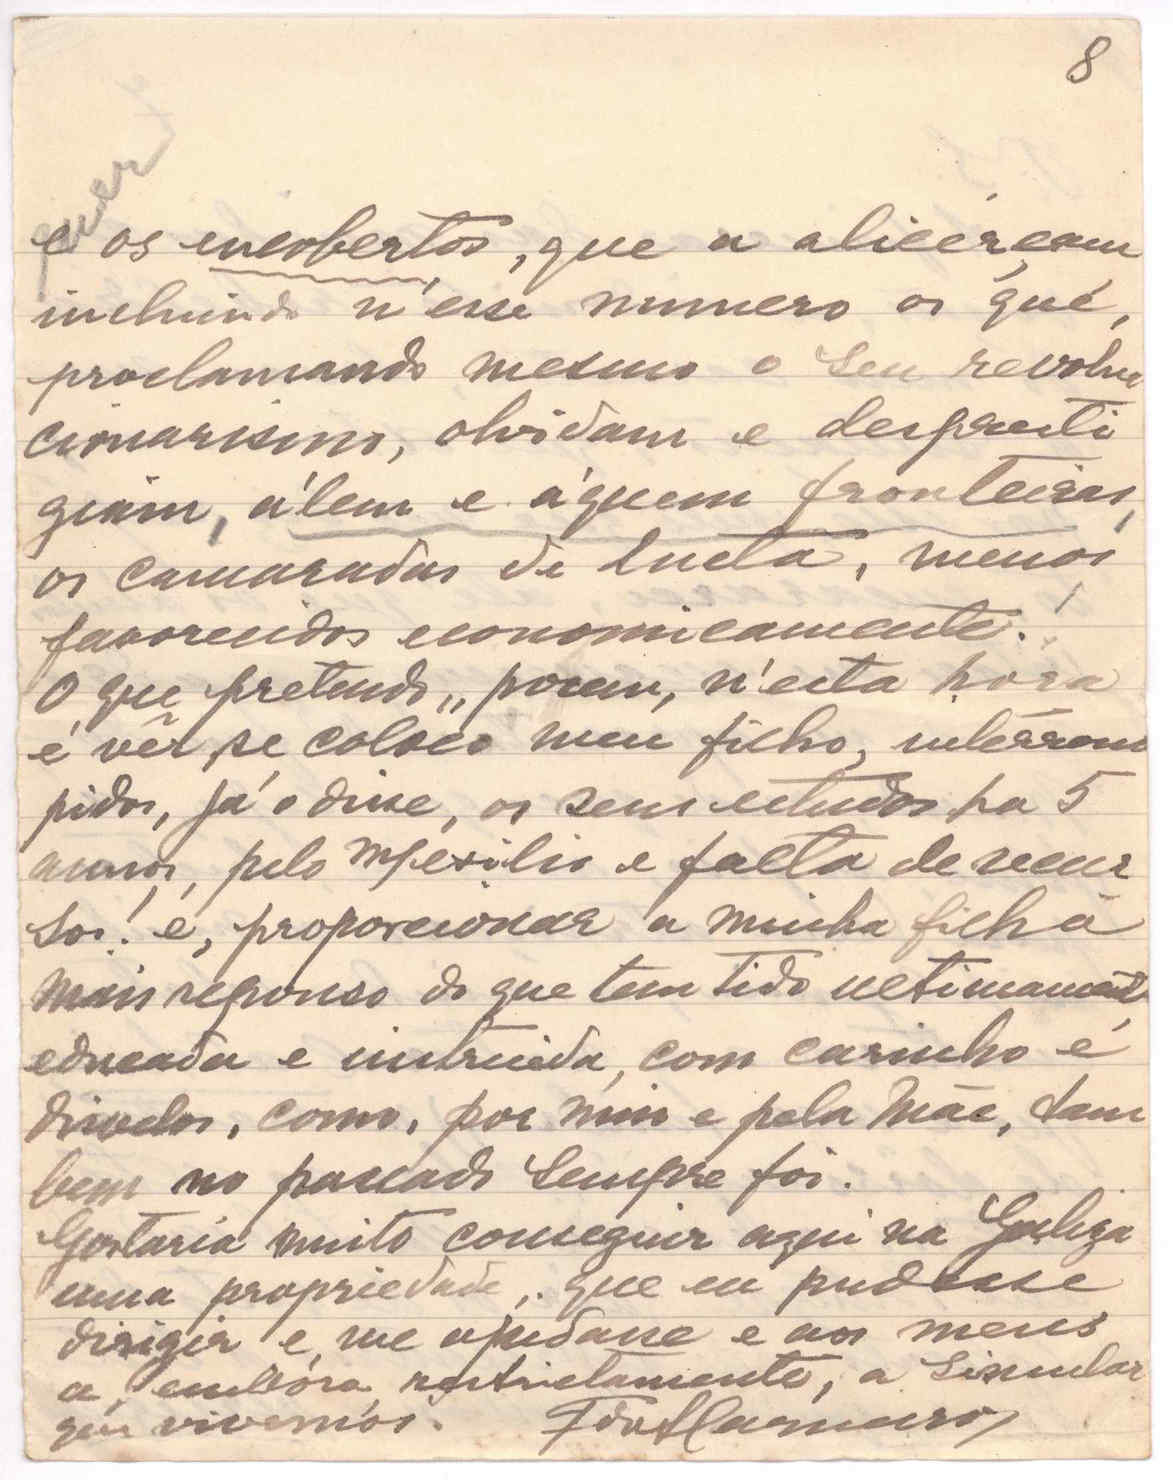 8
e os encobertos, que a alicérçam
incluindo n'esse numero os que,
proclamando mesmo o seu revolu
cionarismo, olvidam e despresti
giam, álem e áquem fronteiras,
os camaradas de lucta, menos
favorecidos economicamente!
O que pretendo, porem, n'esta hora
é vêr se coloco meu filho, interrom
pidos, já o disse, os seus estudos ha 5
annos, pelo exilio e falta de recur
sos! e, proporcionar a minha filha
mais repouso do que tem tido ultimamente
educada e instruida, com carinho e
disvelos, como, por mim e pela Mãe, tam
bem no passado sempre foi.
Gostaria muito conseguir aqui na Galiza
uma propriedade, que eu pudesse
dirigir e me ajudasse e aos meus
a, embóra restrictamente, a simular
que vivemos.